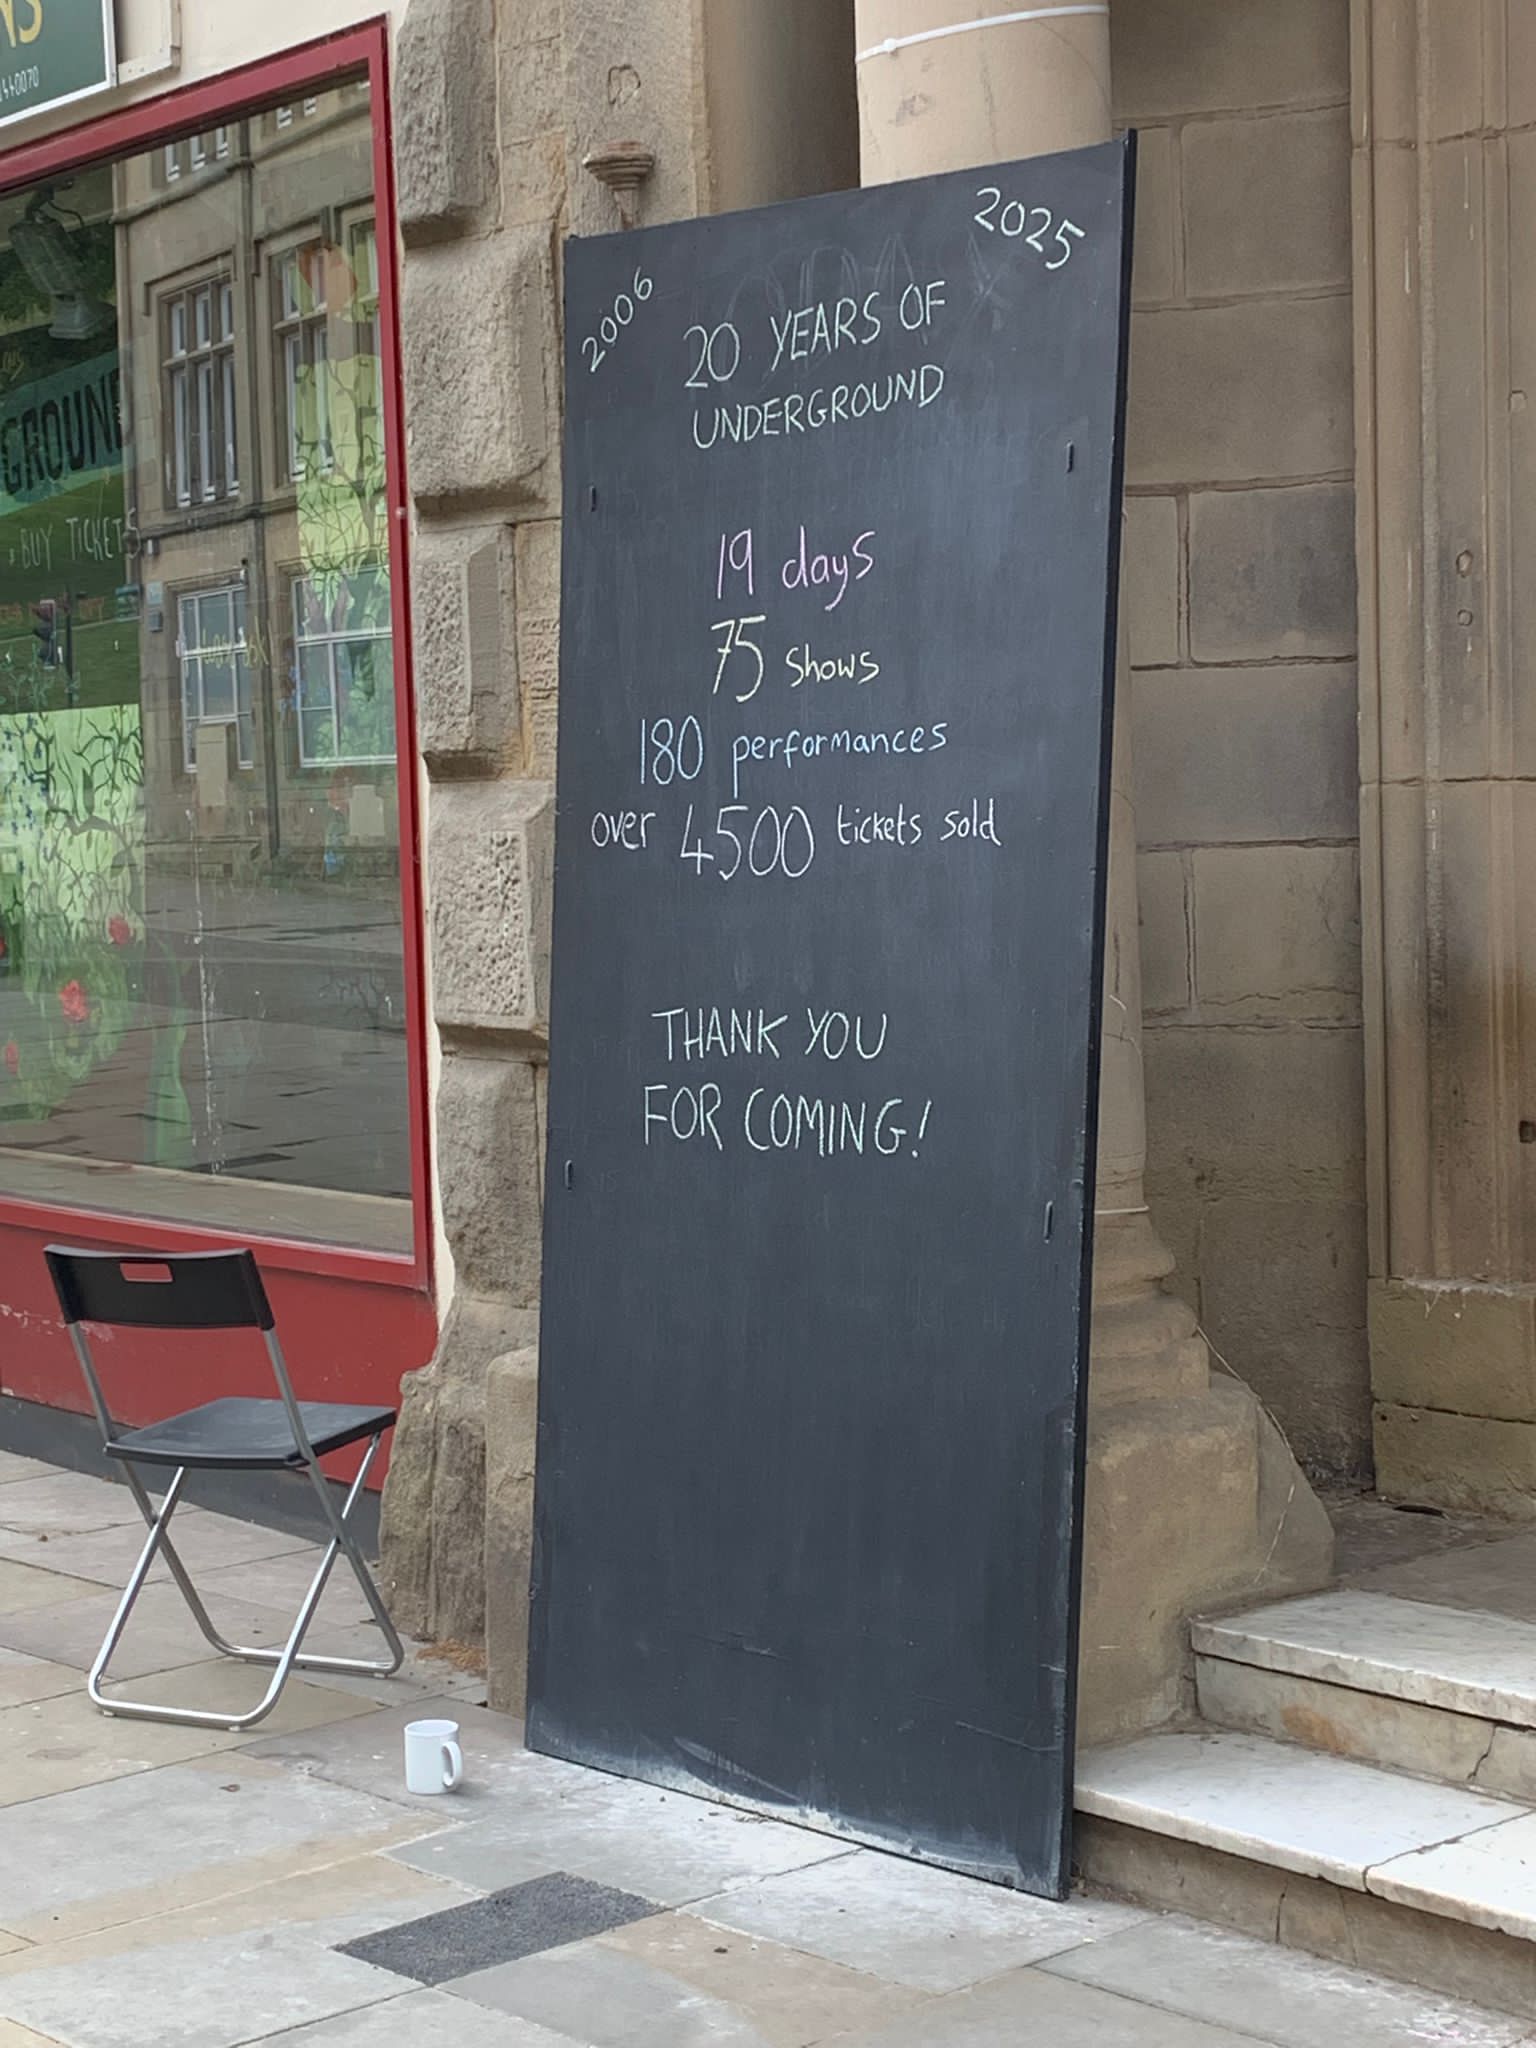 2006
2025
20 YEARS OF
UNDERGROUND
19 days
75 shows
180 performances
over 4500 tickets sold
THANK YOU
FOR COMING!
GROUND
BUY TICKETS